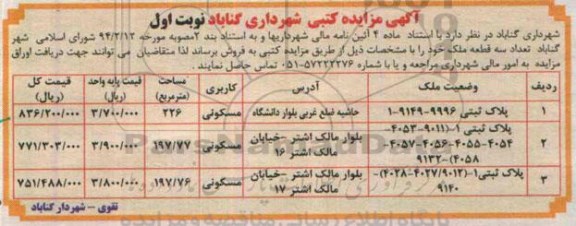 آگهی مزایده کتبی شهرداری گناباد نوبت اول
شهرداری گناباد در نظر دارد با استناد ماده ۴ آئین نامه مالی شهرداریها و به استناد بند ۲مصوبه مورخه ۹۴/۲/۱۲ شورای اسلامی شهر
گناباد تعداد سه قطعه ملک خود را با مشخصات ذیل از طریق مزایده کتبی به فروش برساند لذا متقاضیان می توانند جهت دریافت اوراق
مزایده به امور مالی شهرداری مراجعه و یا با شماره ۵۷۲۲۲۲۷۶-۰۵۱ تماس حاصل نمایند .
ردیف وضعیت ملک آدرس کاربری مساحت (مترمربع) قیمت پایه واحد (ریال) قیمت کل (ریال)
۱ پلاک ثبتی ۹۹۹۶-۹۱۴۹-۱ حاشیه ضلع غربی بلوار دانشگاه مسکونی ۲۲۶ ۳/۷۰۰/۰۰۰ ۸۳۶/۲۰۰/۰۰۰
۲ پلاک ثبتی ۱-(۹۰۱۱-۴۰۵۳-
۴۰۵۴-۴۰۵۵-۴۰۵۶-۴۰۵۷-
۴۰۵۸)-۹۱۳۲ بلوار مالک اشتر -خیابان
مالک اشتر ۱۶ مسکونی ۱۹۷/۷۷ ۳/۹۰۰/۰۰۰ ۷۷۱/۳۰۳/۰۰۰
۳ پلاک ثبتی۱-(۴۰۲۷/۹۰۱۲-۴۰۲۸)-
۹۱۴۰ بلوار مالک اشتر -خیابان
مالک اشتر ۱۷ مسکونی ۱۹۷/۷۶ ۳/۸۰۰/۰۰۰ ۷۵۱/۴۸۸/۰۰۰
تقوی - شهردار گناباد